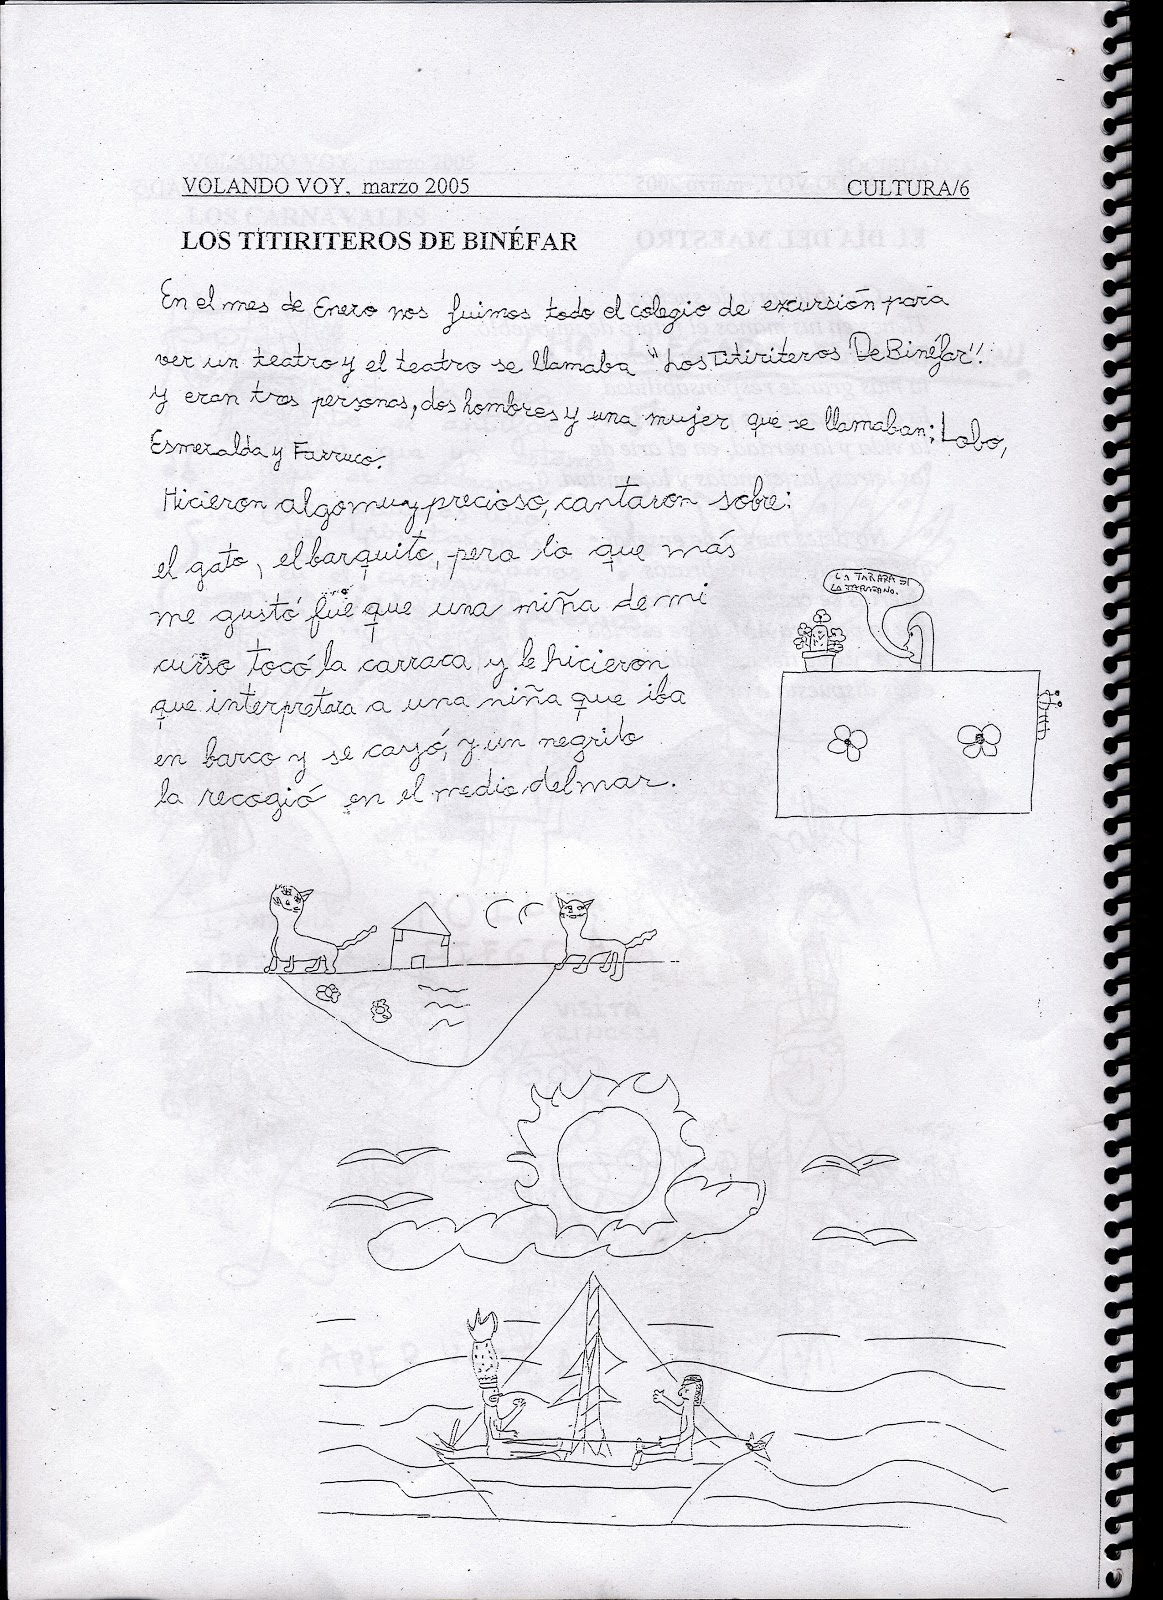 VOLANDO VOY, marzo 2005 CULTURA/6
LOS TITIRITEROS DE BINÉFAR
En el mes de Enero nos fuimos todo el colegio de excursión para
ver un teatro y el teatro se llamaba "Los Titiriteros De Binéfar".
y eran tres personas, dos hombres y una mujer que se llamaban: Lobo,
Esmeralda y Farruco.
Hicieron algo muy precioso, cantaron sobre:
el gato, el barquito, pero lo que más
me gustó fué que una niña de mi
curso tocó la carraca y le hicieron
que interpretara a una niña que iba
en barco y se cayó, y un negrito
la recogió en el medio del mar.
LA TARARA SI
LA TARARA NO.